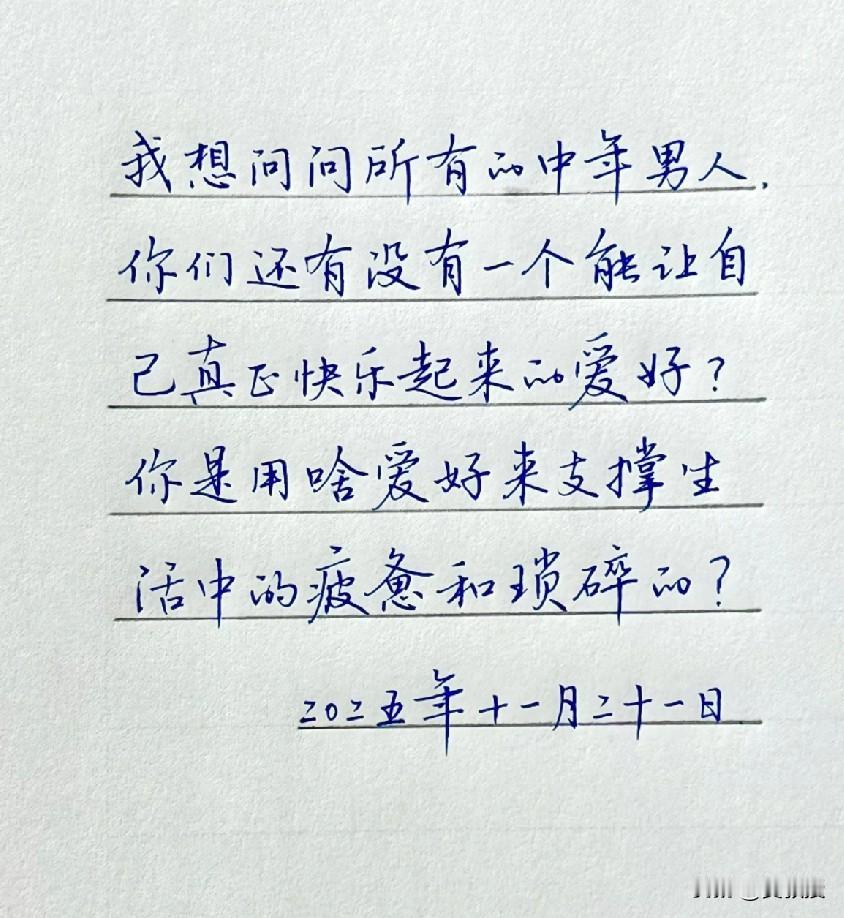 我想问问所有的中年男人,
你们还有没有一个能让自
己真正快乐起来的爱好?
你是用啥爱好来支撑生
活中的疲惫和琐碎的?
二〇二五年十一月二十一日